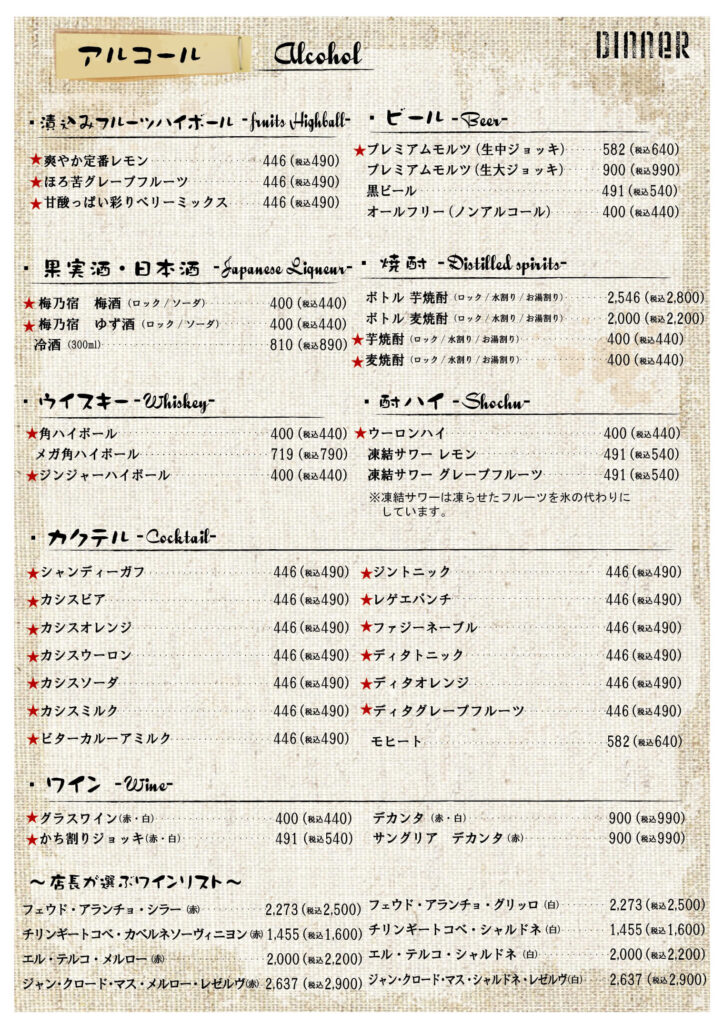 アルコール Alcohol DINNER
・漬込みフルーツハイボール -fruits Highball-
★爽やか定番レモン 446(税込490)
★ほろ苦グレープフルーツ 446(税込490)
★甘酸っぱい彩りベリーミックス 446(税込490)
・ビール -Beer-
★プレミアムモルツ(生中ジョッキ) 582(税込640)
プレミアムモルツ(生大ジョッキ) 900(税込990)
黒ビール 491(税込540)
オールフリー(ノンアルコール) 400(税込440)
・果実酒・日本酒 -Japanese Liqueur-
★梅乃宿 梅酒(ロック/ソーダ) 400(税込440)
★梅乃宿 ゆず酒(ロック/ソーダ) 400(税込440)
冷酒(300ml) 810(税込890)
・焼酎 -Distilled spirits-
ボトル 芋焼酎(ロック/水割り/お湯割り) 2,546(税込2,800)
ボトル 麦焼酎(ロック/水割り/お湯割り) 2,000(税込2,200)
★芋焼酎(ロック/水割り/お湯割り) 400(税込440)
★麦焼酎(ロック/水割り/お湯割り) 400(税込440)
・ウイスキー -Whiskey-
★角ハイボール 400(税込440)
メガ角ハイボール 719(税込790)
★ジンジャーハイボール 400(税込440)
・酎ハイ -Shochu-
★ウーロンハイ 400(税込440)
凍結サワー レモン 491(税込540)
凍結サワー グレープフルーツ 491(税込540)
※凍結サワーは凍らせたフルーツを氷の代わりに
しています。
・カクテル -Cocktail-
★シャンディーガフ 446(税込490)
★カシスビア 446(税込490)
★カシスオレンジ 446(税込490)
★カシスウーロン 446(税込490)
★カシスソーダ 446(税込490)
★カシスミルク 446(税込490)
★ビターカルーアミルク 446(税込490)
★ジントニック 446(税込490)
★レゲエパンチ 446(税込490)
★ファジーネーブル 446(税込490)
★ディタトニック 446(税込490)
★ディタオレンジ 446(税込490)
★ディタグレープフルーツ 446(税込490)
モヒート 582(税込640)
・ワイン -Wine-
★グラスワイン(赤・白) 400(税込440)
★かち割りジョッキ(赤・白) 491(税込540)
デカンタ(赤・白) 900(税込990)
サングリア デカンタ(赤) 900(税込990)
〜店長が選ぶワインリスト〜
フェウド・アランチョ・シラー(赤) 2,273(税込2,500)
チリンギートコベ・カベルネソーヴィニヨン(赤) 1,455(税込1,600)
エル・テルコ・メルロー(赤) 2,000(税込2,200)
ジャン・クロード・マス・メルロー・レゼルヴ(赤) 2,637(税込2,900)
フェウド・アランチョ・グリッロ(白) 2,273(税込2,500)
チリンギートコベ・シャルドネ(白) 1,455(税込1,600)
エル・テルコ・シャルドネ(白) 2,000(税込2,200)
ジャン・クロード・マス・シャルドネ・レゼルヴ(白) 2,637(税込2,900)